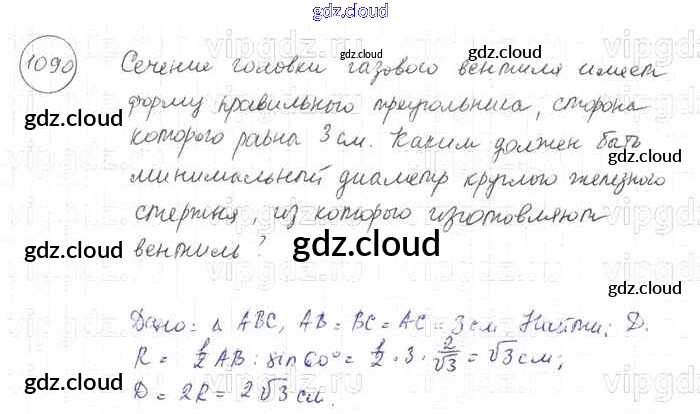 gdz.cloud
1090 Сечение головки газового вентиля имеет
форму правильного треугольника, сторона
которого равна 3 см. Каким должен быть
минимальный диаметр круглого железного
стержня, из которого изготовляют
вентиль?
Дано: Δ ABC, AB = BC = AC = 3 см. Найти: D.
R = 1/2 AB : sin 60° = 1/2 · 3 · 2/√3 = √3 см;
D = 2R = 2√3 см.
gdz.cloud
gdz.cloud
gdz.cloud
gdz.cloud
gdz.cloud
gdz.cloud
gdz.cloud
gdz.cloud
gdz.cloud
gdz.cloud
gdz.cloud